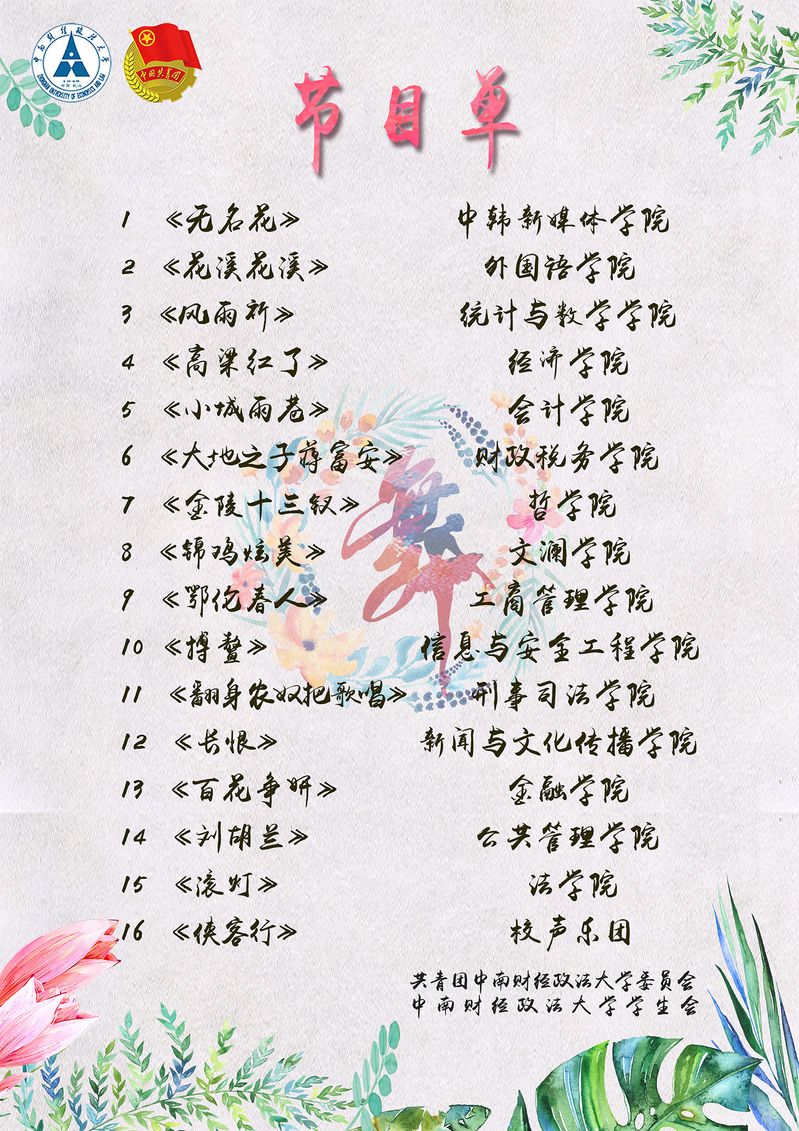 中南财经政法大学
1948
中国·武汉
ZHONGNAN UNIVERSITY OF ECONOMICS AND LAW
中国共青团
节目单
1 《无名花》 中韩新媒体学院
2 《花溪花溪》 外国语学院
3 《风雨祈》 统计与数学学院
4 《高梁红了》 经济学院
5 《小城雨巷》 会计学院
6 《大地之子蒋富安》 财政税务学院
7 《金陵十三钗》 哲学院
8 《锦鸡炫美》 文澜学院
9 《鄂伦春人》 工商管理学院
10 《搏鳌》 信息与安全工程学院
11 《翻身农奴把歌唱》 刑事司法学院
12 《长恨》 新闻与文化传播学院
13 《百花争妍》 金融学院
14 《刘胡兰》 公共管理学院
15 《滚灯》 法学院
16 《侠客行》 校声乐团
舞
共青团中南财经政法大学委员会
中南财经政法大学学生会